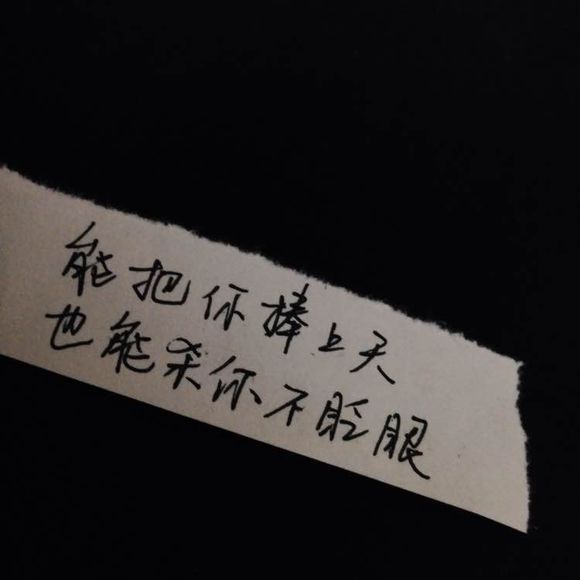 能把你捧上天
也能杀你不眨眼